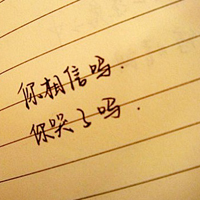 你相信吗.
你哭了吗.